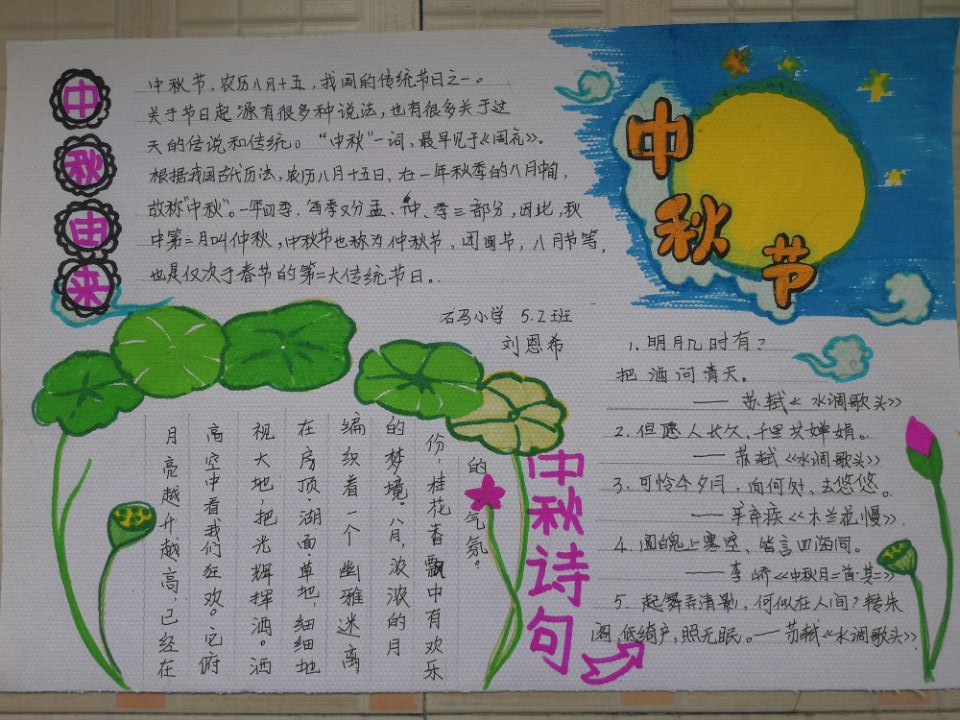 中秋由来
中秋节，农历八月十五，我国的传统节日之一。
关于节日起源有很多种说法，也有很多关于这
天的传说和传统。“中秋”一词，最早见于《周礼》。
根据我国古代历法，农历八月十五日，在一年秋季的八月中间，
故称“中秋”。一年四季，每季又分孟、仲、季三部分，因此，秋
中第二月叫仲秋，中秋节也称为仲秋节，团圆节，八月节等，
也是仅次于春节的第二大传统节日。
石马小学 5.2班
刘恩希
中秋节
月亮越升越高，已经在
高空中看我们狂欢。它俯
视大地，把光辉挥洒。洒
在房顶.湖面.草地，细细地
编织着一个幽雅迷离
的梦境。八月，浓浓的月
份，桂花香飘中有欢乐
的气氛。
中秋诗句
1. 明月几时有？
把酒问青天。
—— 苏轼《水调歌头》
2. 但愿人长久，千里共婵娟。
—— 苏轼《水调歌头》
3. 可怜今夕月，向何处、去悠悠。
—— 辛弃疾《木兰花慢》
4. 圆魄上寒空，皆言四海同。
—— 李峤《中秋月二首·其二》
5. 起舞弄清影，何似在人间？转朱
阁，低绮户，照无眠。——苏轼《水调歌头》